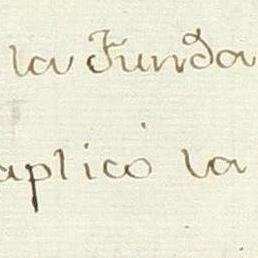 la Funda
aplicó la